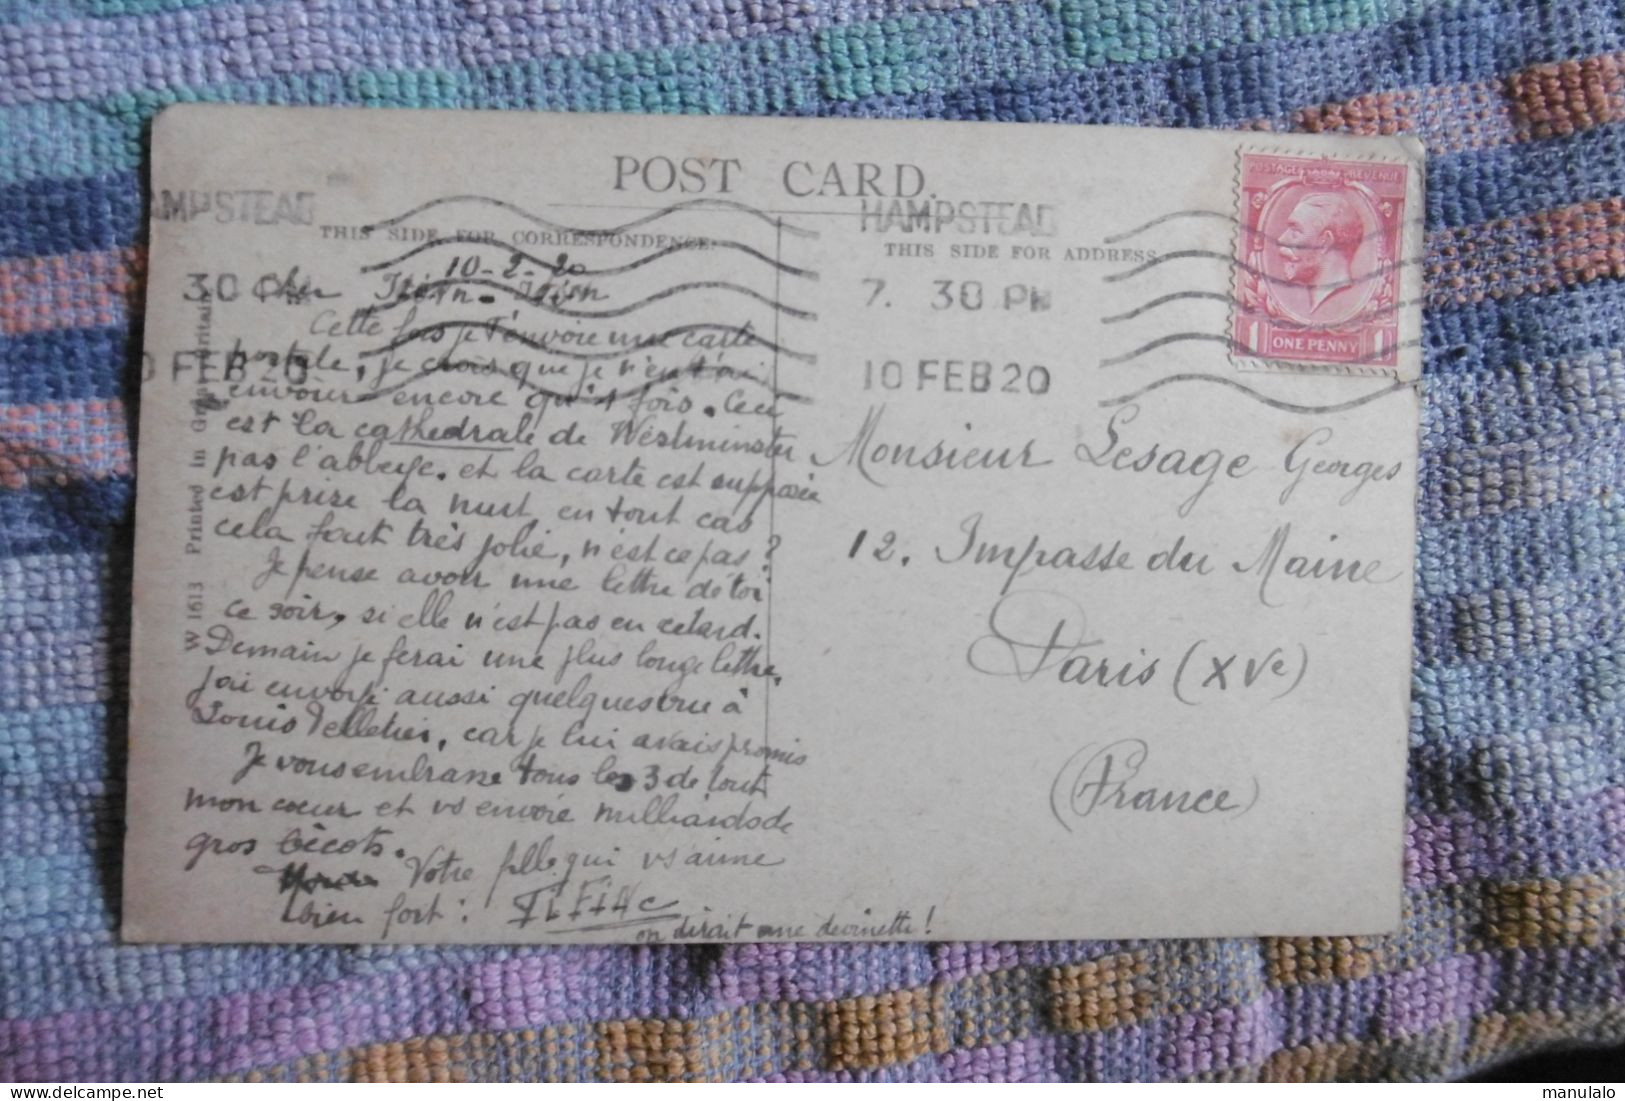 POST CARD.
HAMPSTEAD
HAMPSTEAD
THIS SIDE FOR CORRESPONDENCE.
THIS SIDE FOR ADDRESS
POSTAGE REVENUE
1 ONE PENNY 1
30 PM
7. 30 PM
10 FEB 20
FEB 20
W 1613 Printed in Great Britain
10-2-20
Cher
Cette fois je t'envoie une carte
postale, je crois que je n'en t'ai
envoyer encore qu'1 fois. Ceci
est la cathedrale de Westminster
pas l'abbeye. et la carte est supposée
est prise la nuit en tout cas
cela fait très jolie, n'est ce pas?
Je pense avoir une lettre de toi
ce soir, si elle n'est pas en retard.
Demain je ferai une plus longe lettre,
j'ai envoyé aussi quelques vue à
Louis Pelletier, car je lui avais promis
Je vous embrasse tous les 3 de tout
mon cœur et vs envoie milliards de
gros bécots.
Votre fille qui vs aime
bien fort:
on dirait une devinette!
Monsieur Lesage Georges
12. Impasse du Maine
Paris (XVe)
(France)
manulalo